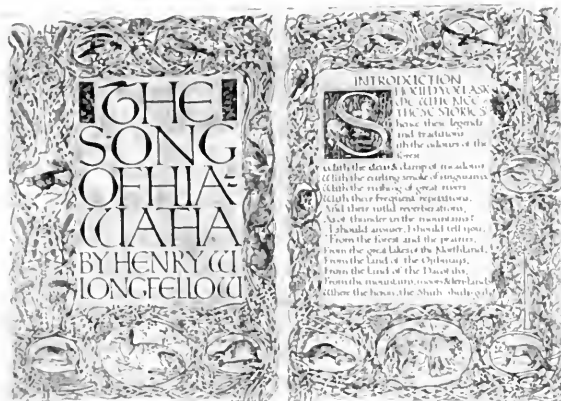 THE
SONG
OF HIA-
WATHA
BY HENRY W
LONGFELLOW
INTRODUCTION
SHOULD YOU ASK
ME, WHENCE
THESE STORIES
these legends
and traditions
With the odours of the
forest
With the dew & damp of meadows
With the curling smoke of wigwams
With the rushing of great rivers
With their frequent repetitions,
And their wild reverberations,
As of thunder in the mountains?
I should answer, I should tell you,
"From the forest and the prairies,
From the great lakes of the Northland,
From the land of the Ojibways,
From the land of the Dacotahs,
From the mountains, moors & fen-lands
Where the heron, the Shuh-shuh-gah